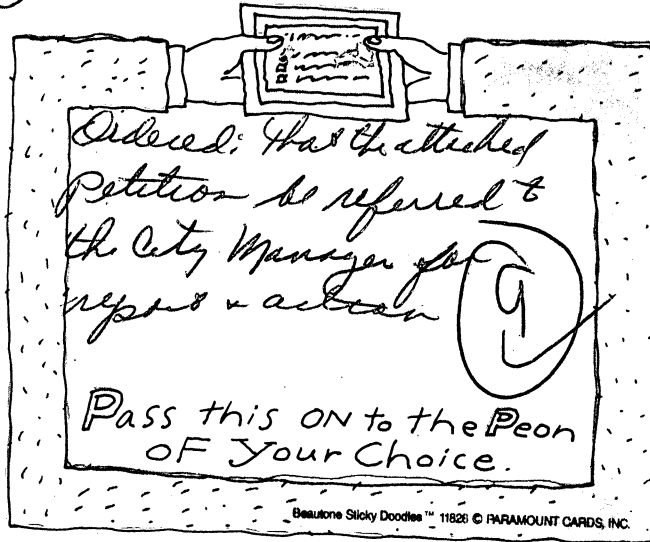 Ordered: That the attached
petition be referred to
the City Manager for
report & action
9
Pass this ON to the Peon
OF Your Choice.
Beautone Sticky Doodles™ 11826 © PARAMOUNT CARDS, INC.